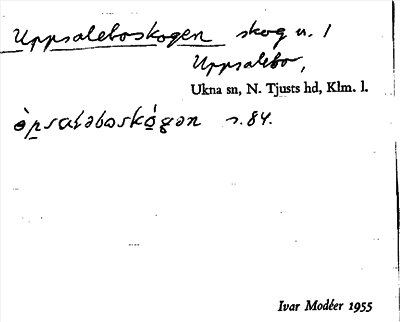 Uppsaleboskogen skog u. 1
Uppsalebo,
Ukna sn, N. Tjusts hd, Klm. l.
òpsaləboskógən s. 84.
Ivar Modéer 1955